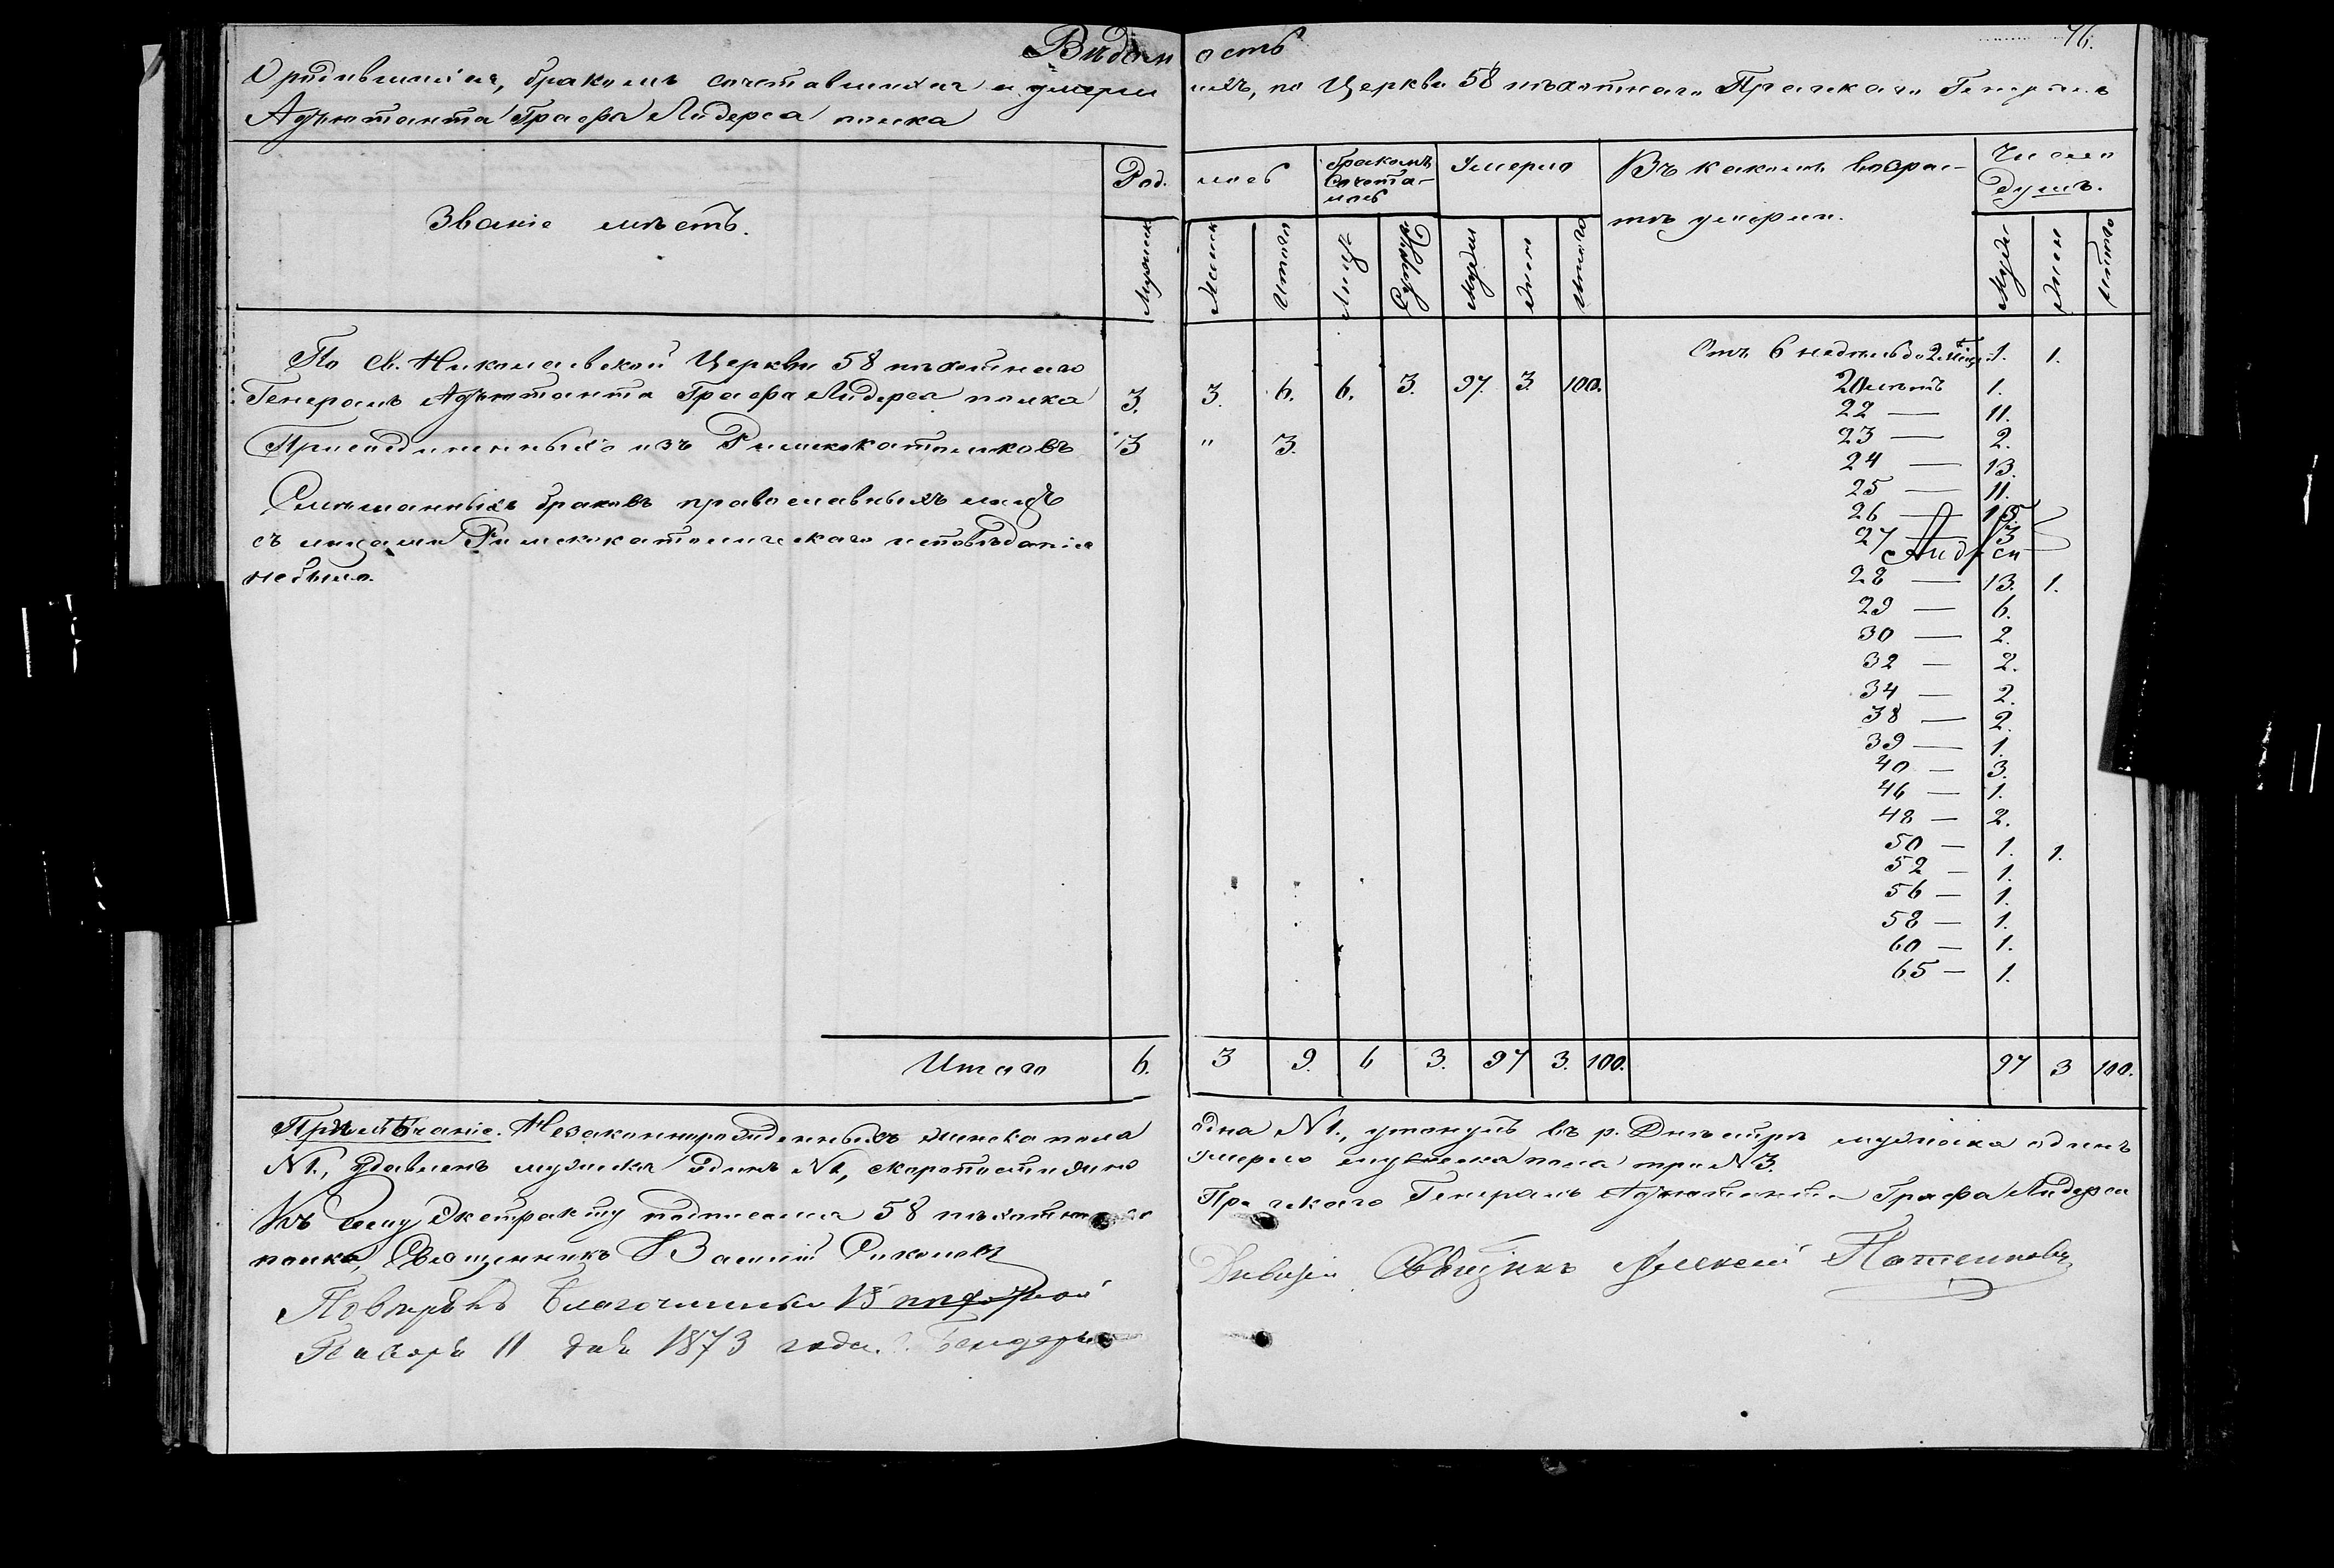 76.
Вѣдомость
О родившихся, бракомъ сочетавшихся и умершихъ, по Церкви 58 пѣхотнаго Прагскаго Генералъ
Адъютанта Графа Лидерса полка
Званіе мѣстъ.
Родилось
Бракомъ сочеталось
Умерло
Въ какомъ возрастѣ умерли.
Число душъ.
Мужеска Женск Итого Лицъ Супружествъ Мужеск Женск Итого Мужес Женск Итого
По Св. Николаевской Церкви 58 пѣхотнаго
Генералъ Адъютанта Графа Лидерса полка 3. 3. 6. 6. 3. 97. 3. 100.
Присоединенныхъ изъ Римскокатоликовъ 3 " 3.
Смѣшанныхъ браковъ православныхъ лицъ
съ лицами Римскокатолическаго исповѣданія
небыло.
Отъ 6 недѣль до 2 1. 1.
20 лѣтъ 1.
22 — 11.
23 — 2.
24 — 13.
25 — 11.
26 — 15
27 — 3
28 — 13. 1.
29 — 6.
30 — 2.
32 — 2.
34 — 2.
38 — 2.
39 — 1.
40 — 3.
46 — 1.
48 — 2.
50 — 1. 1.
52 — 1.
56 — 1.
58 — 1.
60 — 1.
65 — 1.
Итого 6. 3 9. 6 3. 97 3. 100. 97 3 100.
Примѣчаніе. Незаконнорожденныхъ женска пола одна №1., утонулъ въ р. Днѣстрѣ мужеска одинъ
№1., удавленъ мужеска одинъ №1, скоропостижно умерло мужеска пола три №3.
Къ сему Экстракту подписался 58 пѣхотнаго Прагскаго Генералъ Адъютанта Графа Лидерса
полка, Священникъ Василій
Повѣрялъ Благочинный 15 пѣхотной Дивизіи Священникъ Алексій
Генваря 11 дня 1873 года. Бендеры